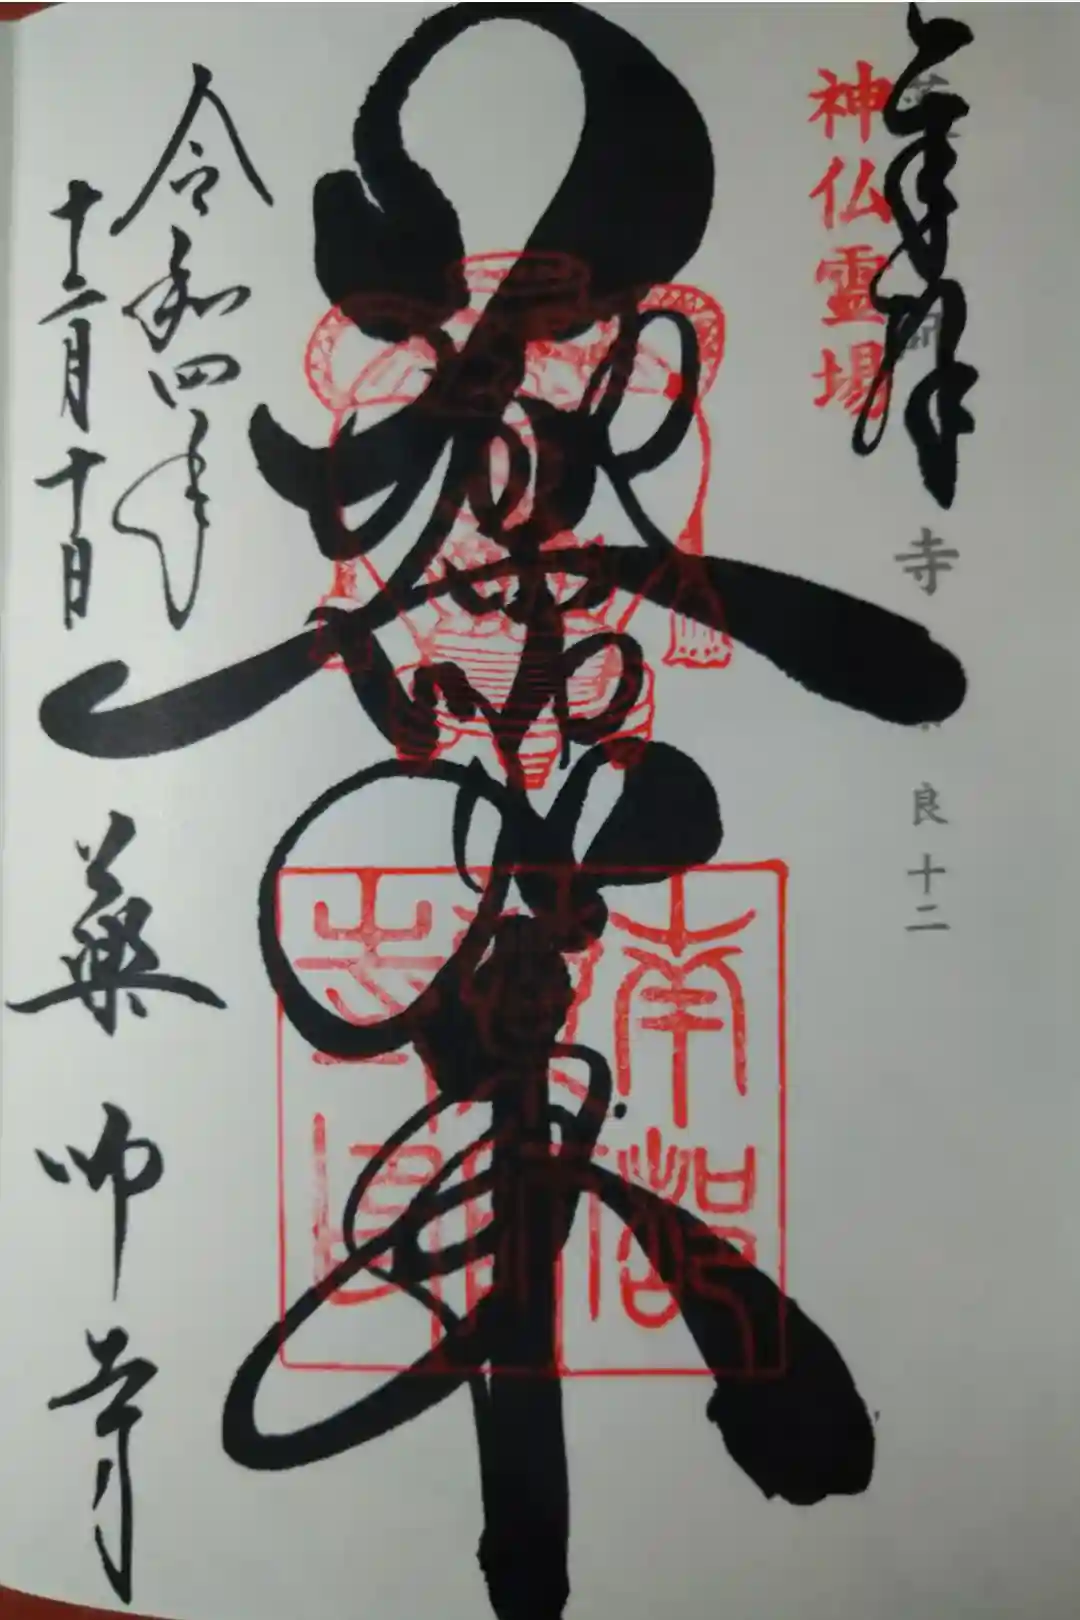 奉拝
神仏霊場
寺
良十二
薬師如来
南都
薬師
寺印
令和四年
十二月十日
藥師寺